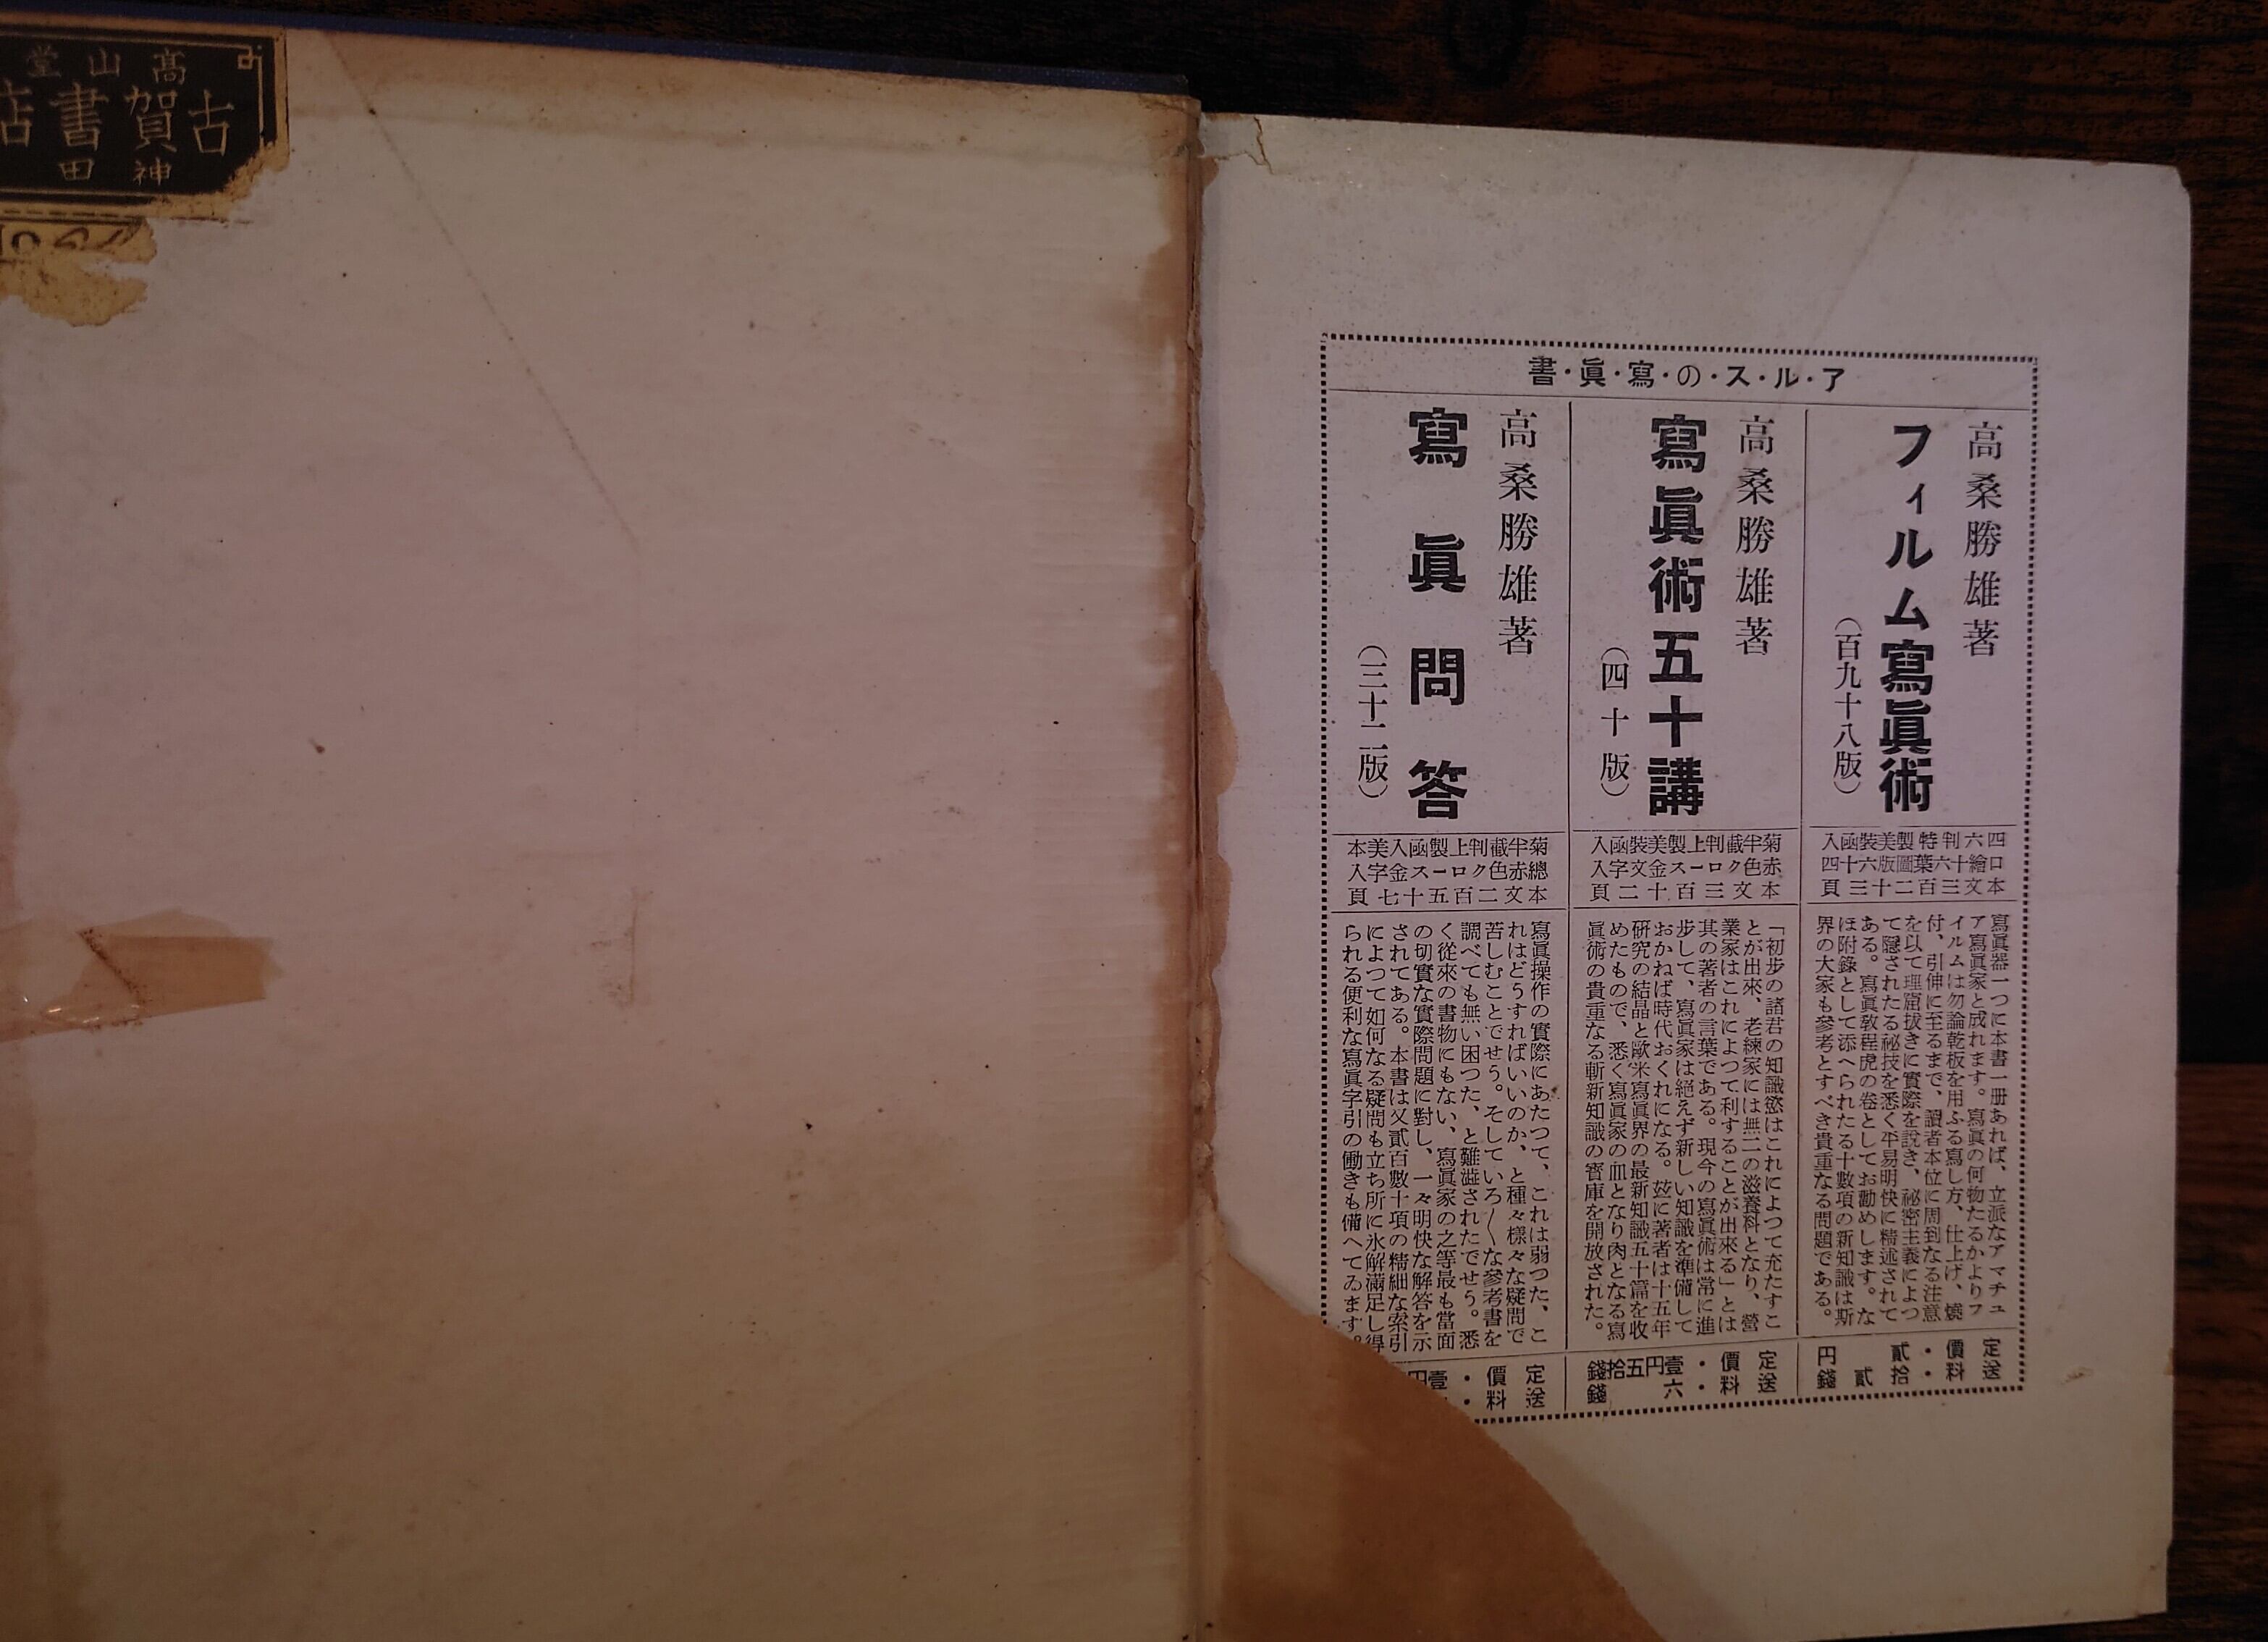 高山堂
古賀書店
神田
ア・ル・ス・の・寫・眞・書
高桑勝雄著
フィルム寫眞術
（百九十八版）
四六判特製美裝函入
口繪十六葉圖版六十四
本文三百二十三頁
寫眞器一つに本書一册あれば、立派なアマチュ
ア寫眞家と成れます。寫眞の何物たるかよりフ
イルムは勿論乾板を用ふる寫し方、仕上げ、燒
付、引伸に至るまで、讀者本位に周到なる注意
を以て理窟拔きに實際を說き、祕密主義によつ
て隱されたる祕技を悉く平易明快に精述されて
ある。寫眞敎程虎の卷としてお勸めします。な
ほ附錄として添へられたる十數項の新知識は斯
界の大家も參考とすべき貴重なる問題である。
定價・・貳円
送料・・拾貳錢
高桑勝雄著
寫眞術五十講
（四十版）
菊半截判上製美裝函入
赤色クロース金文字入
本文三百十二頁
「初步の諸君の知識慾はこれによつて充たすこ
とが出來、老練家には無二の滋養料となり、營
業家はこれによつて利することが出來る」とは
其の著者の言葉である。現今の寫眞術は常に進
步して、寫眞家は絕えず新しい知識を準備して
おかねば時代おくれになる。玆に著者は十五年
硏究の結晶と歐米寫眞界の最新知識五十篇を收
めたもので、悉く寫眞家の血となり肉となる寫
眞術の貴重なる斬新知識の寶庫を開放された。
定價・・壹円五拾錢
送料・・六錢
高桑勝雄著
寫眞問答
（三十二版）
菊半截判上製函入美本
總赤色クロース金字入
本文二百五十七頁
寫眞操作の實際にあたつて、これは弱つた、こ
れはどうすればいいのか、と種々樣々な疑問で
苦しむことでせう。そしていろ〱な參考書を
調べても無い困つた、と難澁されたでせう。悉
く從來の書物にもない、寫眞家の之等最も當面
の切實な實際問題に對し、一々明快な解答を示
されてある。本書は又貳百數十項の精細な索引
によつて如何なる疑問も立ち所に氷解滿足し得
られる便利な寫眞字引の働きも備へてゐます。
定價・・壹円
送料・・